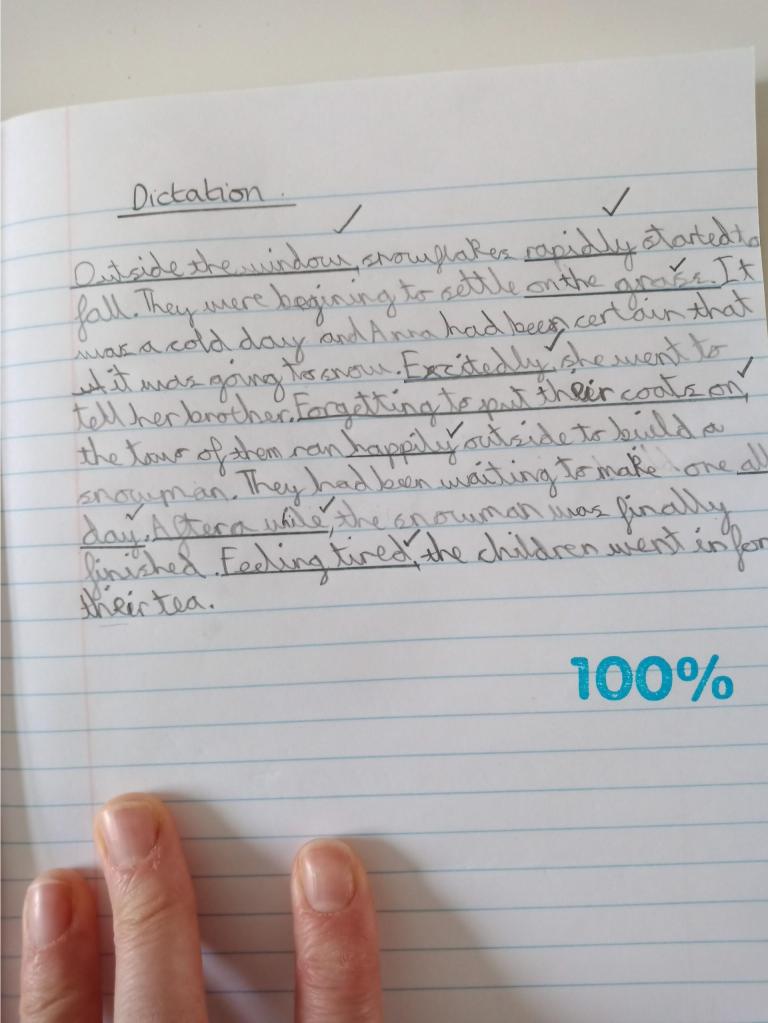 Dictation.
Outside the window, snowflakes rapidly started to
fall. They were begining to settle on the grass. It
was a cold day and Anna had been certain that
it was going to snow. Excitedly, she went to
tell her brother. Forgetting to put their coats on,
the two of them ran happily outside to build a
snowman. They had been waiting to make one all
day. After a while, the snowman was finally
finished. Feeling tired, the children went in for
their tea.
100%